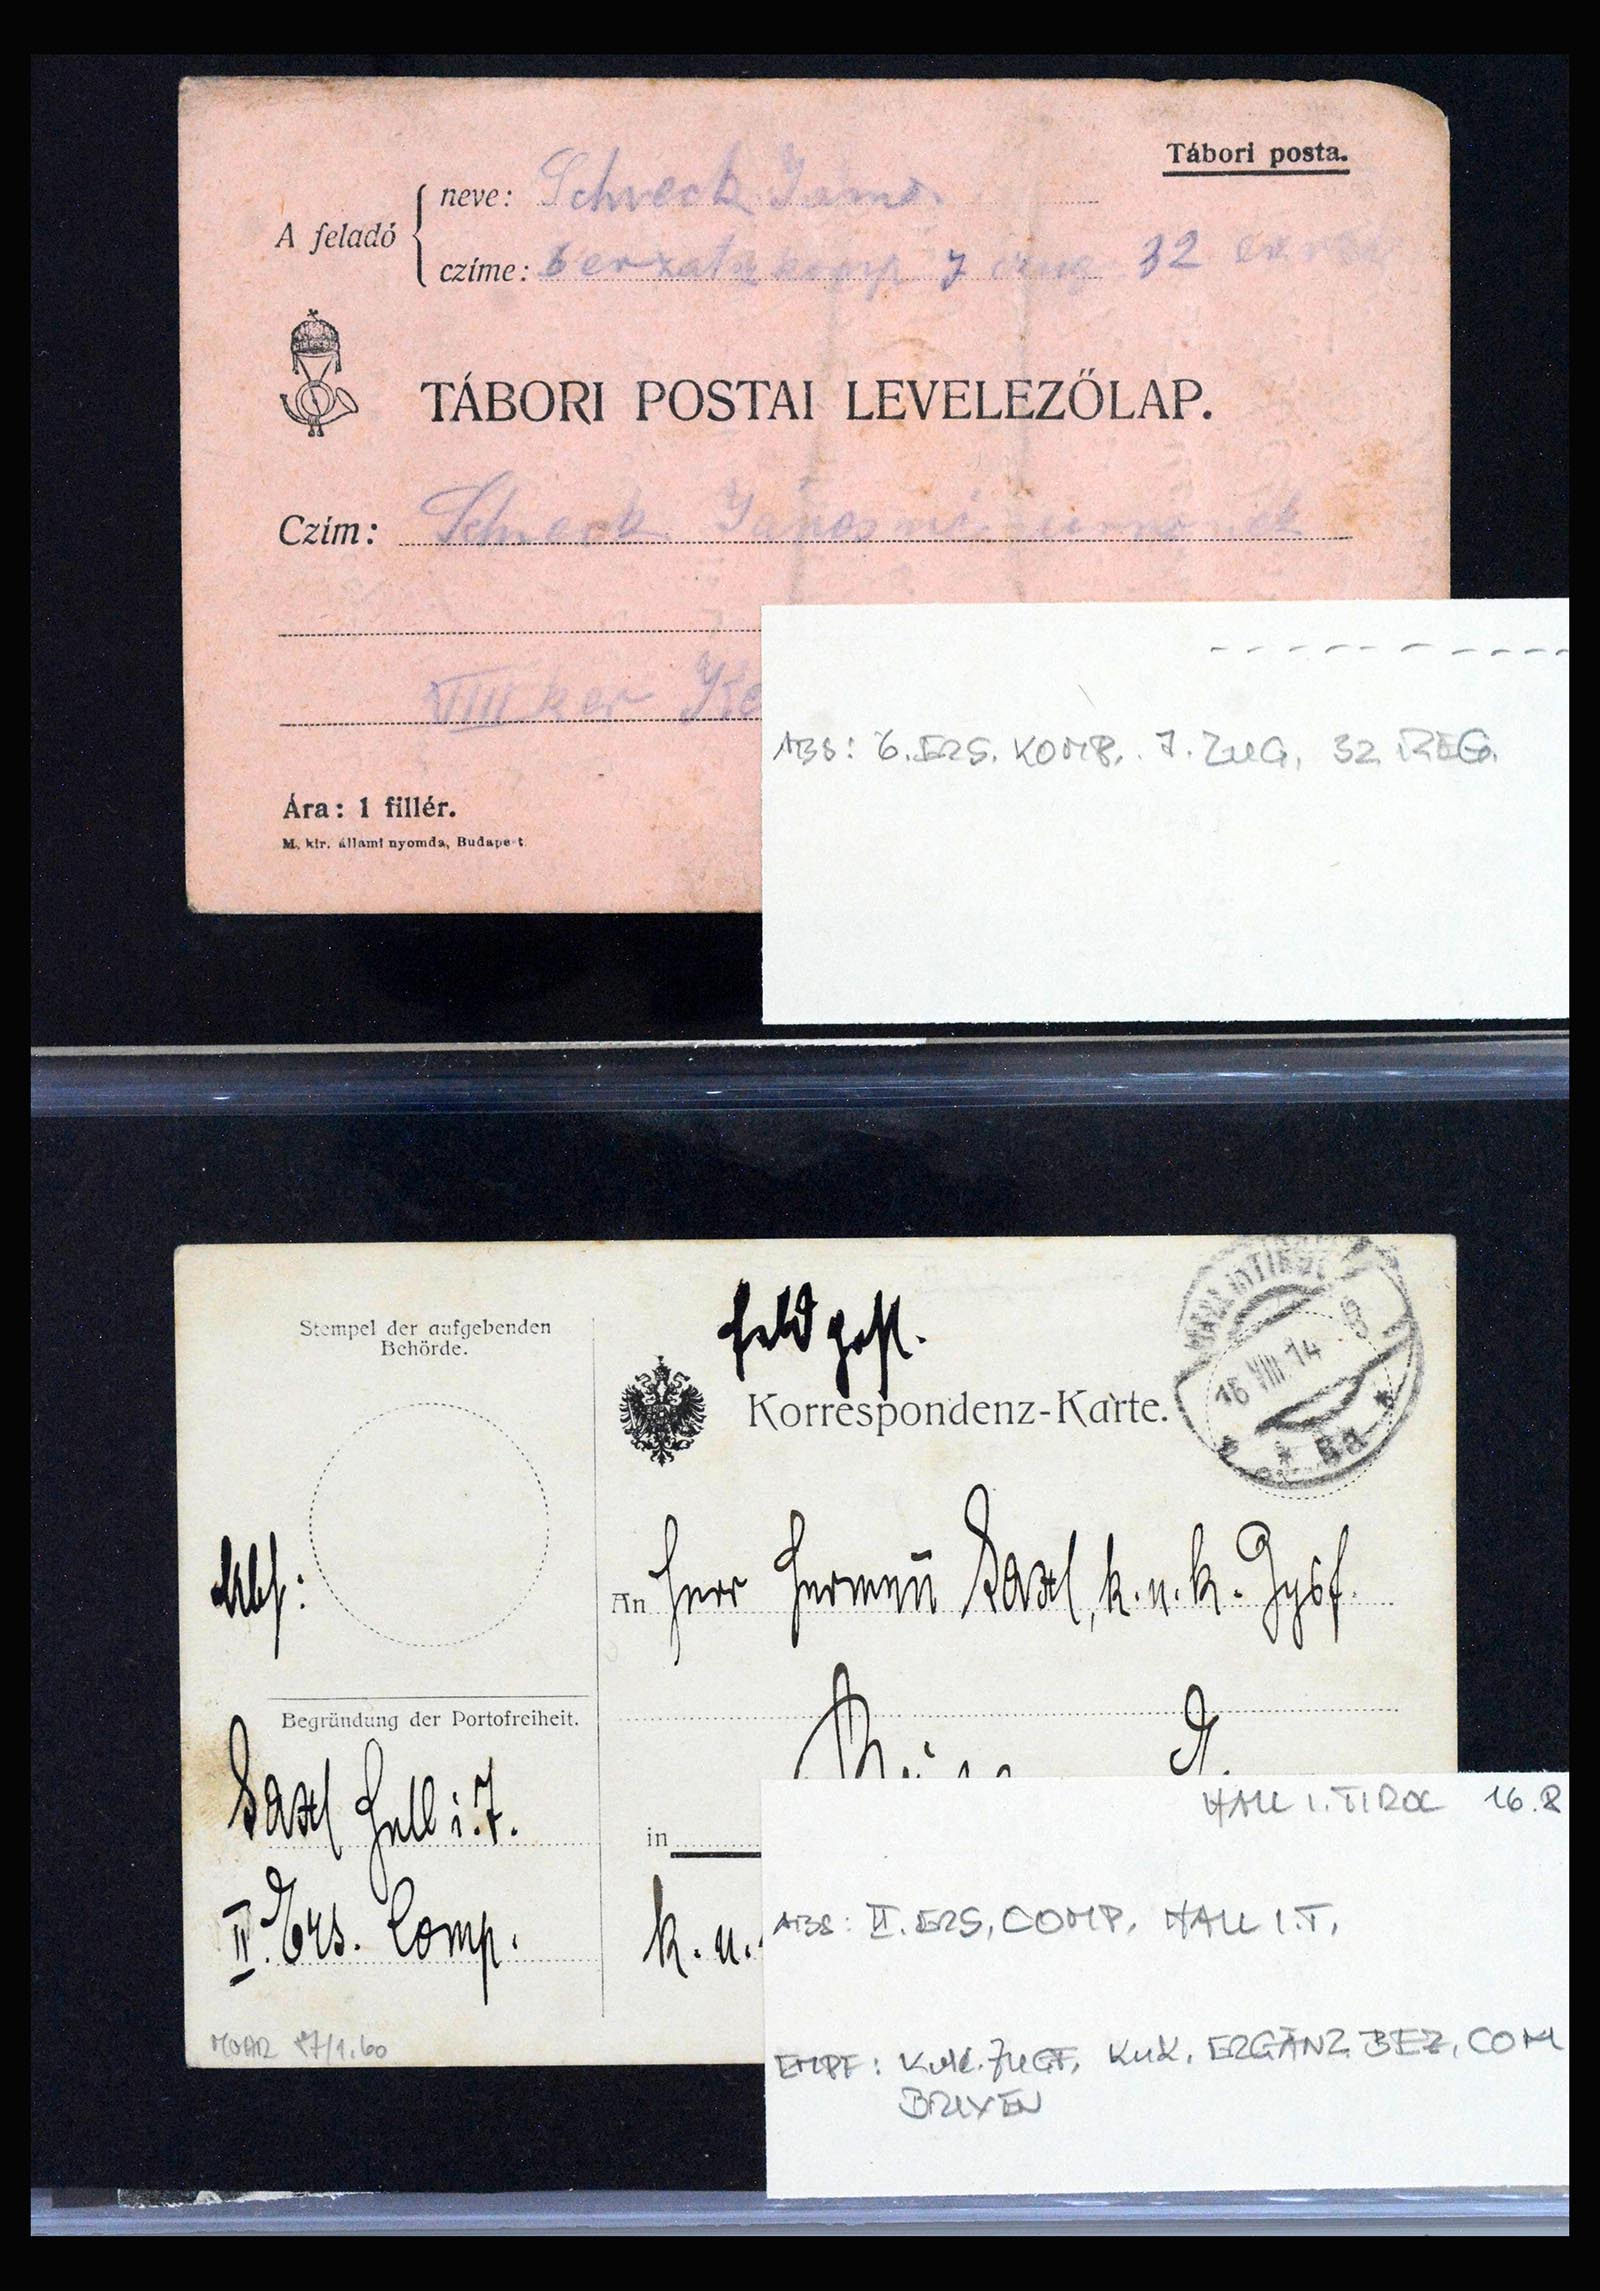 Tábori posta.
A feladó
neve: Schreck János
czíme: 6 erzatz komp 7 zug 32
TÁBORI POSTAI LEVELEZŐLAP.
Czím: Schreck Jánosné
VIII ker
Ára: 1 fillér.
M. kir. állami nyomda, Budapest
ABS: 6. ERS. KOMP. 7. ZUG, 32. REG.
Stempel der aufgebenden
Behörde.
Feldpost.
Korrespondenz-Karte.
HALL in TIROL
16 VIII 14
* * 8a *
Abs:
An Herr Hermann Saxl, k.u.k. Zgsf.
Begründung der Portofreiheit.
Saxl Hall i. T.
II. Ers. Comp.
in
k. u.
MVAR 17/1.60
HALL I. TIROL 16.8
ABS: II. ERS. COMP. HALL I.T.
EMPF: KUK. ZUGF. KUK. ERGÄNZ. BEZ. COM
BRIXEN